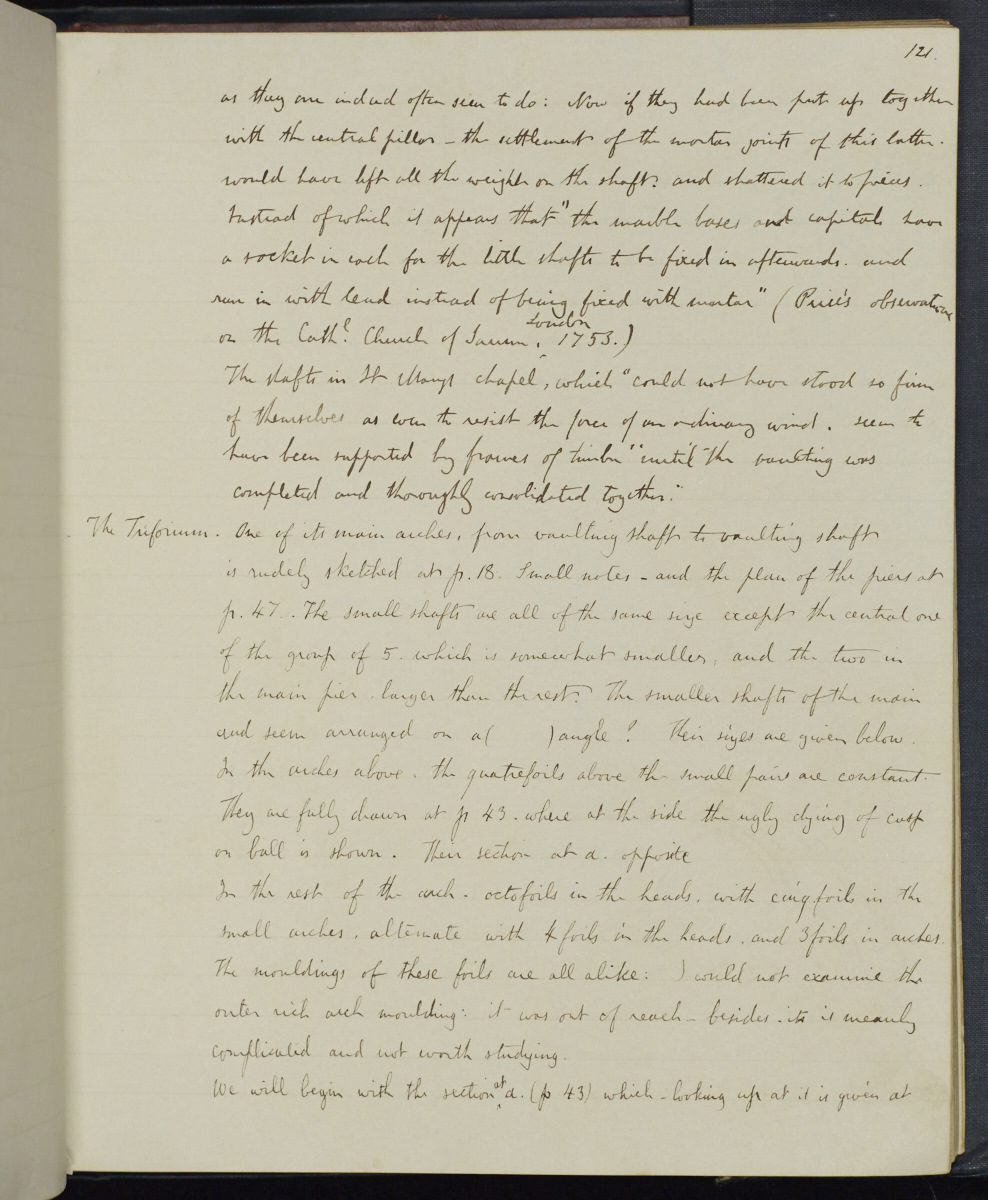 121.
as they are indeed often seen to do: Now if they had been put up together
with the central pillar – the settlement of the mortar joints of this latter.
would have left all the weight on the shaft: and shattered it to pieces.
Instead of which it appears that "the marble bases and capitals have
a socket in each for the little shafts to be fixed in afterwards. and
run in with lead instead of being fixed with mortar" (Price's observations
on the Cathl. Church of Sarum, London 1753.)
The shafts in St Marys chapel, which "could not have stood so firm
of themselves as even to resist the force of an ordinary wind. seem to
have been supported by frames of timber" "until the vaulting was
completed and thoroughly consolidated together."
The Triforium. One of its main arches, from vaulting shaft to vaulting shaft
is rudely sketched at p. 18. Small notes – and the plan of the piers at
p. 47.. The small shafts are all of the same size except the central one
of the group of 5. which is somewhat smaller, and the two in
the main pier. larger than the rest: The smaller shafts of the main
and seem arranged on a ( ) angle? Their sizes are given below.
In the arches above. the quatrefoils above the small pairs are constant.
They are fully drawn at p 43. where at the side the ugly dying of cusp
on ball is shown. Their section at a. opposite
In the rest of the arch – octofoils in the heads, with cinqfoils in the
small arches, alternate with 4 foils in the heads, and 3 foils in arches.
The mouldings of these foils are all alike: I could not examine the
outer rich arch moulding: it was out of reach – besides. it is meanly
complicated and not worth studying.
We will begin with the section at a. (p 43) which – looking up at it is given at